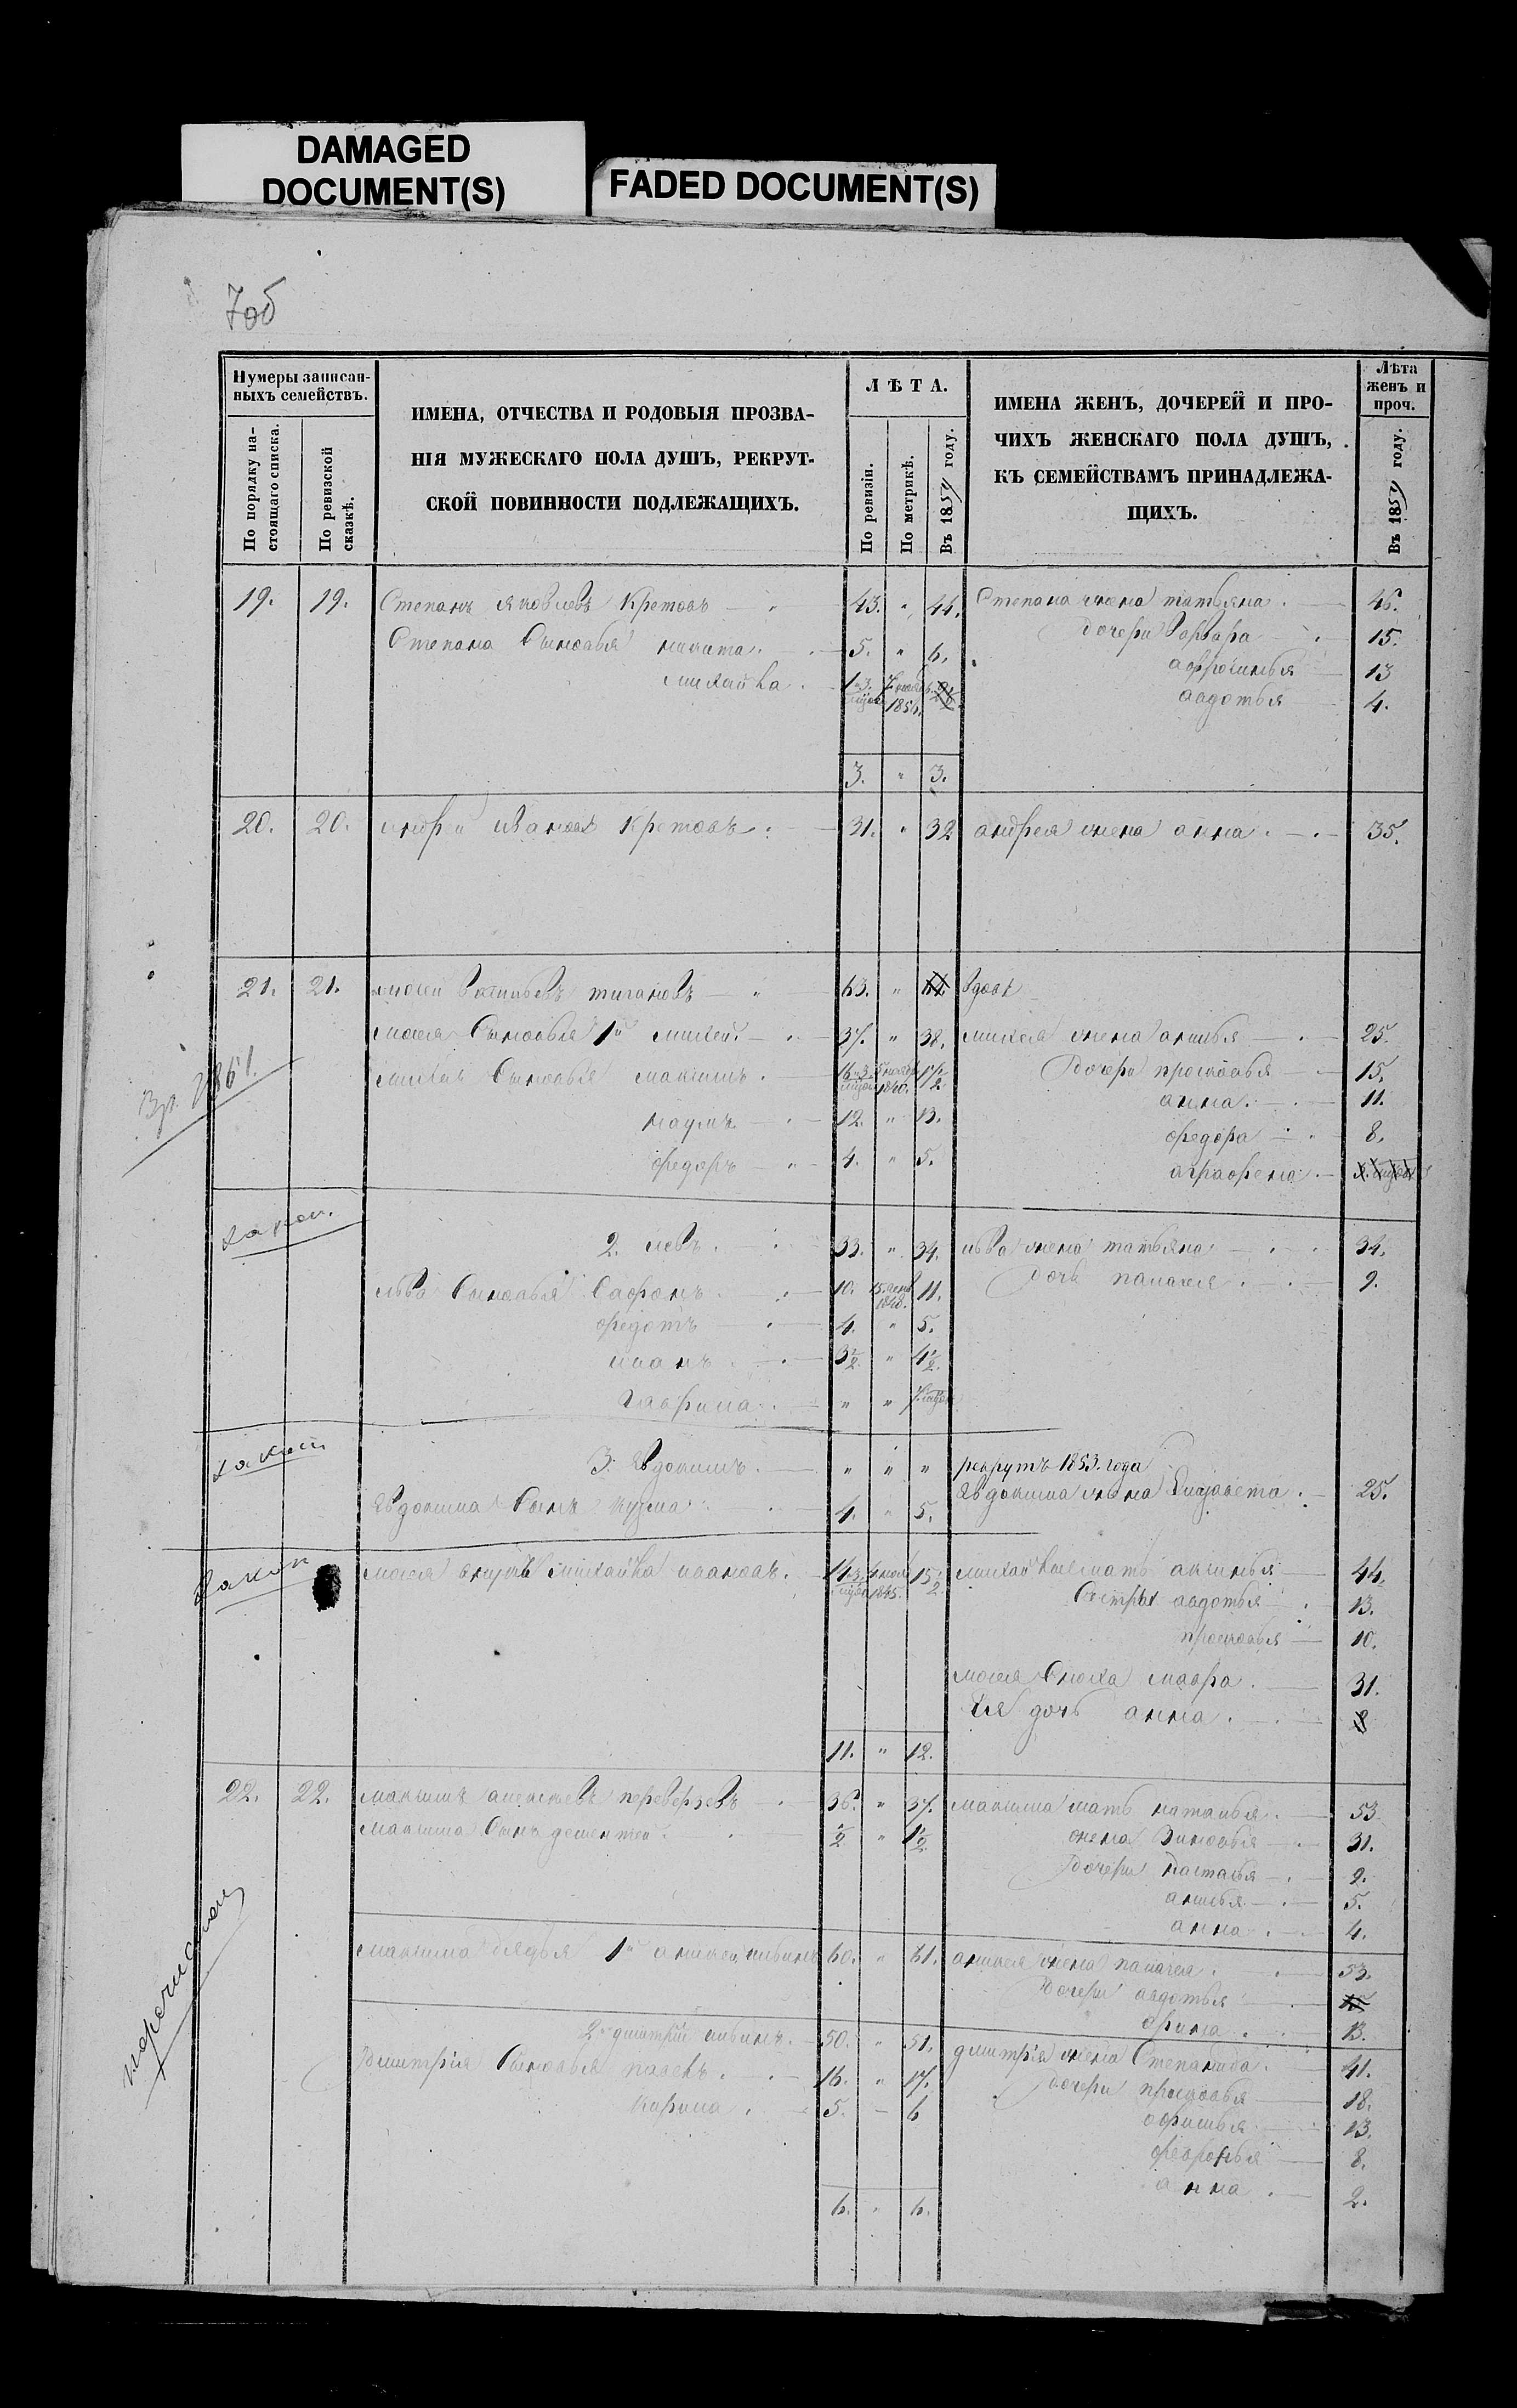 DAMAGED
DOCUMENT(S)
FADED DOCUMENT(S)
7об
Нумеры записан-
ныхъ семействъ.
По порядку на-
стоящаго списка.
По ревизской
сказкѣ.
ИМЕНА, ОТЧЕСТВА И РОДОВЫЯ ПРОЗВА-
НІЯ МУЖЕСКАГО ПОЛА ДУШЪ, РЕКРУТ-
СКОЙ ПОВИННОСТИ ПОДЛЕЖАЩИХЪ.
ЛѢТА.
По ревизіи.
По метрикѣ.
Въ 185 году.
ИМЕНА ЖЕНЪ, ДОЧЕРЕЙ И ПРО-
ЧИХЪ ЖЕНСКАГО ПОЛА ДУШЪ,
КЪ СЕМЕЙСТВАМЪ ПРИНАДЛЕЖА-
ЩИХЪ.
Лѣта
женъ и
проч.
Въ 185 году.
19. 19. Степанъ яковлевъ Кретовъ — 43. " 44. Степана жена татьяна. — 46.
Степана Сыновья никита. — 5. " 6. дочери Варвара — 15.
михайла. — 1854. афросинья — 13
авдотья — 4.
3. " 3.
20. 20. андрей ивановъ Кретовъ. — 31. " 32 андрея жена анна. — 35.
21. 21. мосей васильевъ — 63. " вдовъ
мосея Сыновья 1й михей. — 37. " 38. михея жена анисья — 25.
михея Сыновья максимъ. — 1840. дочери просковья — 15.
наумъ — 12. " 13. анна. — 11.
федоръ — 4. " 5. федора — 8.
аграфена. —
2. левъ. — 33. " 34. льва жена татьяна — 34.
льва Сыновья Сафонъ. — 10. 11. дочь палагея. — 9.
федотъ — 4. " 5.
иванъ. — 3½ " 4½
гаврила. — " "
3. Евдокимъ. — " " " рекрутъ 1853. года
Евдокима жена Елизавета. — 25.
Евдокима Сынъ кузма — 4. " 5.
мосея внукъ михайла ивановъ. — 1845. 15½ михайлы мать аксинья — 44.
Сестры авдотья — 13.
просковья — 10.
мосея Сноха мавра. — 31.
Ея дочь анна. —
11. " 12.
22. 22. максимъ алексеевъ переверзевъ — 36. " 37. максима мать наталья. — 53
максима Сынъ — ½ " 1½ жена Зиновья — 31.
дочери настасья — 9.
анисья. — 5.
анна. — 4.
максима дядья 1й 60. " 61. жена палагея. — 53.
дочери авдотья —
орина. 13.
2й — 50. " 51. дмитрія жена Степанида. — 41.
дмитрія Сыновья павелъ. — 16. " 17. дочери просковья — 18.
кирила. — 5. — 6 афимья — 13.
февронья — 8.
анна. — 2.
6. " 6.